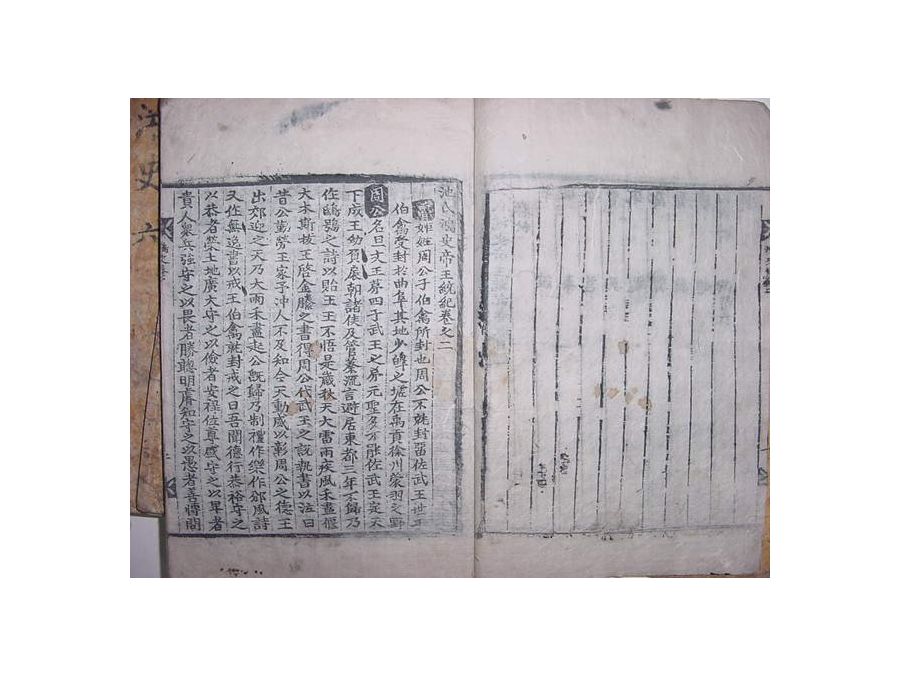 池氏鴻史帝王統紀卷之一
魯姬姓周公子伯禽所封也周公不就封留佐武王世
伯禽受封於曲阜其地少皥之墟在禹貢徐州蒙羽之野
周公名旦文王第四子武王之弟元聖多才能佐武王定天
下成王幼負扆朝諸侯及管蔡流言避居東都三年不歸乃
作鴟鴞之詩以貽王王不悟是歲秋天大雷雨疾風禾盡偃
大木斯拔王啓金縢之書得周公代武王之說執書以泣曰
昔公勤勞王家予冲人不及知今天動威以彰周公之德王
出郊迎之天乃大雨禾盡起公旣歸乃制禮作樂作邠風詩
又作無逸書以戒王伯禽就封戒之曰吾聞德行恭裕守之
以恭者榮土地廣大守之以儉者安祿位尊盛守之以卑者
貴人衆兵强守之以畏者勝聰明睿知守之以愚者善博聞
史 六